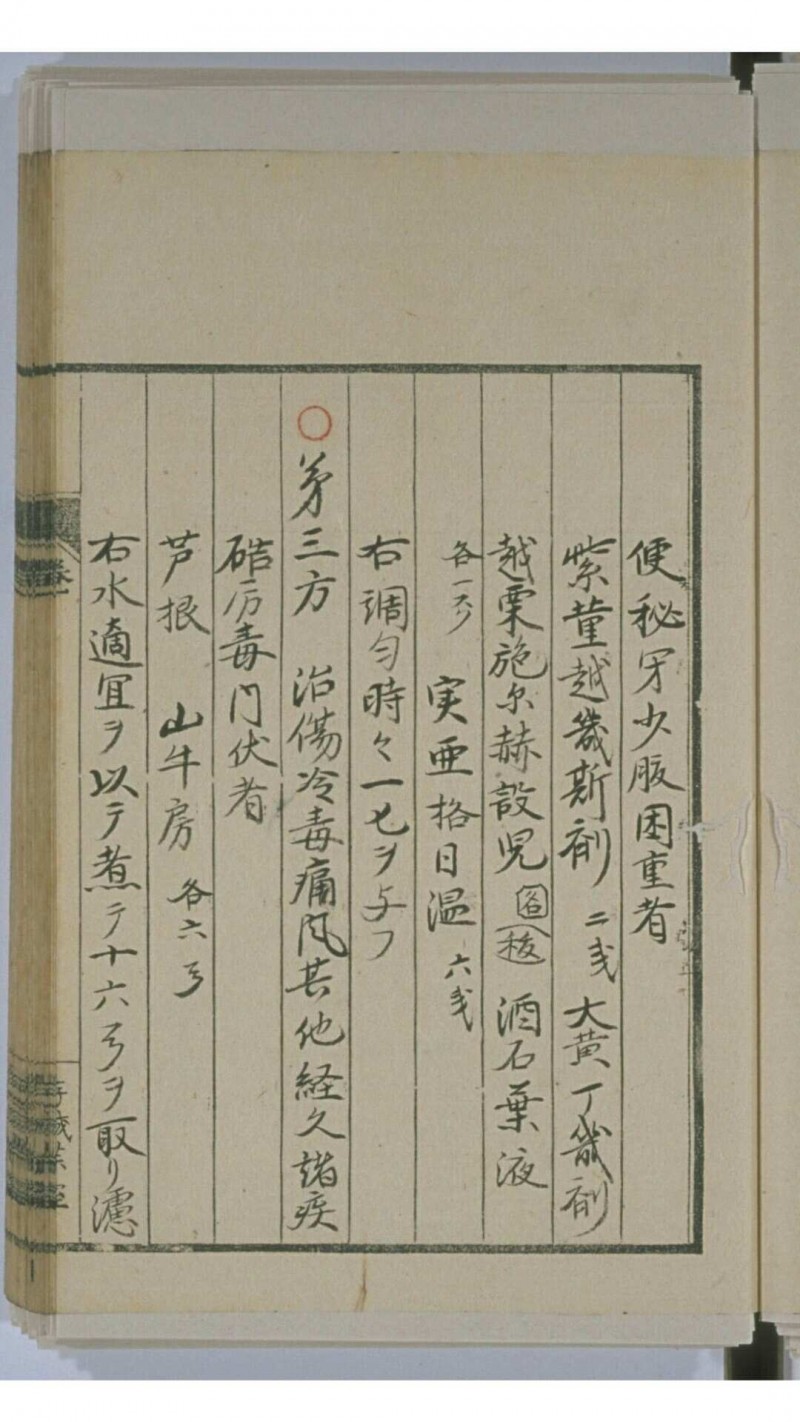 便秘牙少腹困重者
紫菫越幾斯剤 二戔 大黄丁幾剤
越栗施尓赫設児 酒石葉液
各一 実亜格日温 六戔
右調匀時々一匕ヲ与フ
〇第三方 治傷冷毒痛风其他経久諸疾
硞厉毒門伏者
芦根 山牛房 各六
右水適宜ヲ以テ煮テ十六ヲ取リ濾
巻一